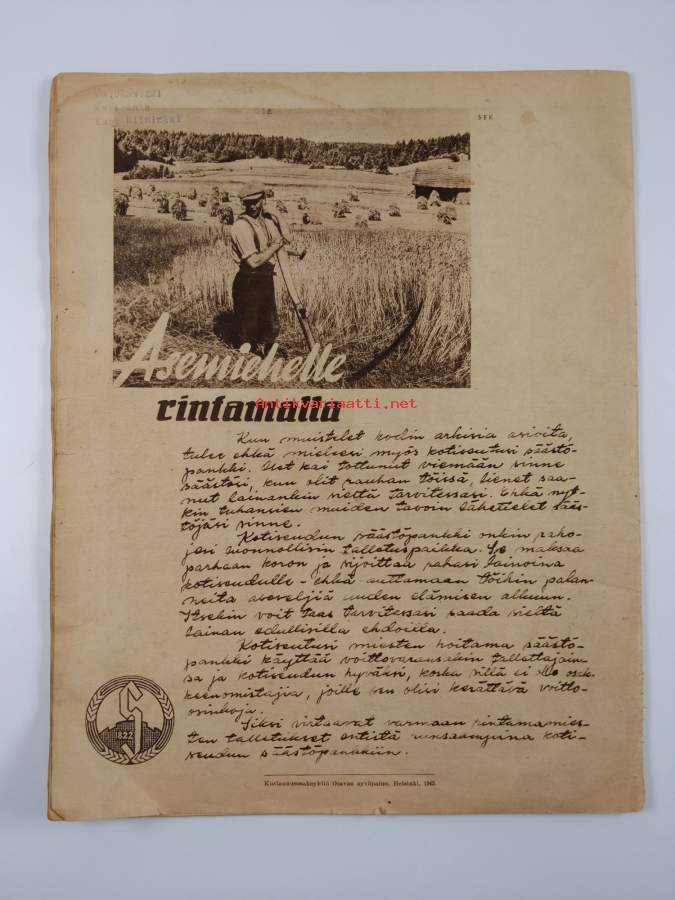 SEK
Asemiehelle
rintamalla
Antikvariaatti.net
Kun muistelet kodin arkisia asioita,
tulee ehkä mieleesi myös kotiseutusi säästö-
pankki. Olet kai tottunut viemään sinne
säästösi, kun olit rauhan töissä, lienet saa-
nut lainankin sieltä tarvitessasi. Ehkä nyt-
kin tuhansien muiden tavoin lähettelet sääs-
töjäsi sinne.
Kotiseudun säästöpankki onkin raho-
jesi luonnollisin talletuspaikka. Se maksaa
parhaan koron ja sijoittaa rahasi lainoina
kotiseudulle - ehkä auttamaan töihin palan-
neita aseveljiä uuden elämisen alkuun.
Itsekin voit taas tarvitessasi saada sieltä
lainan edullisilla ehdoilla.
Kotiseutusi miesten hoitama säästö-
pankki käyttää voittovaransakin tallettajain-
sa ja kotiseudun hyväksi, koska sillä ei ole osak-
keenomistajia, joille sen olisi kerättävä voitto-
osinkoja.
Siksi virtaavat varmaan rintamamies-
ten talletukset entistä runsaampina koti-
seudun säästöpankkiin.
1822
Kustannusosakeyhtiö Otavan syväpaino, Helsinki, 1942.